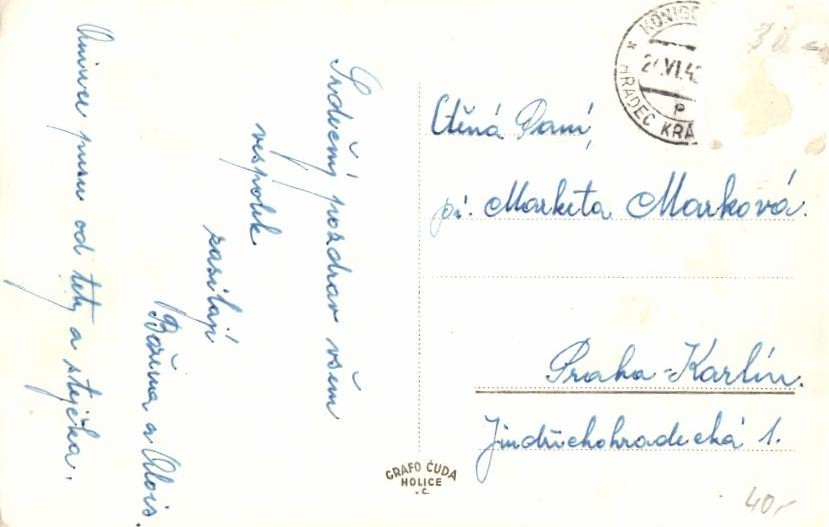 Srdečný pozdrav všem
vespolek
zasílají
Božena a Alois.
pusu od tety a strýčka.
Ctěná Paní,
pí. Marketa Marková.
Praha-Karlín.
Jindřichohradecká 1.
KÖNIGG
2 .VI.4
P
HRADEC KRÁ
GRAFO ČUDA
HOLICE
v.Č.
30
40,-